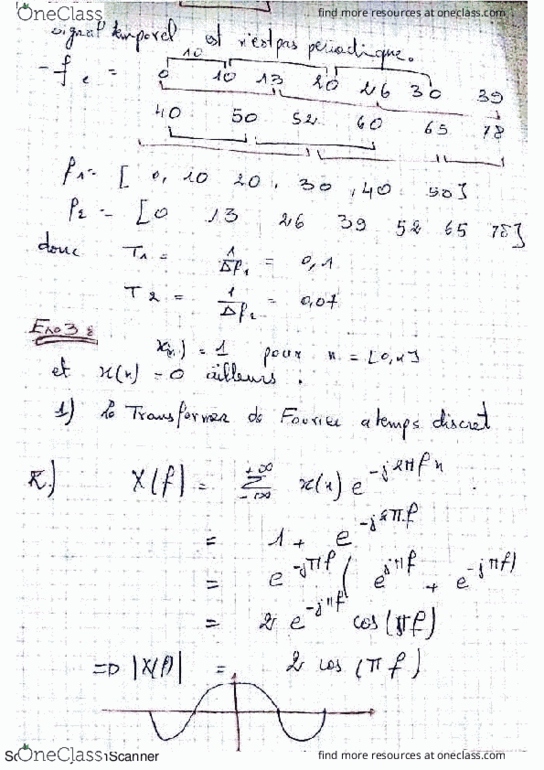 OneClass
find more resources at oneclass.com
signal temporel est n'est pas periodique.
10
- f e = 0 10 13 20 26 30 39
40 50 52 60 65 78
f1 = [ 0, 10 20, 30 , 40 50]
f2 = [0 13 26 39 52 65 78]
donc T1 = 1/Δf1 = 0,1
T2 = 1/Δf2 = 0,07
Exo 3 :
x(n) = 1 pour n = [0,1]
et x(n) = 0 ailleurs.
1) la Transformer de Fourier a temps discret
X(f) = Σ +∞ -∞ x(n) e^-j2πfn
= 1 + e^-j2πf
= e^-jπf ( e^jπf + e^-jπf)
= 2 e^-jπf cos(πf)
=D |X(f)| = 2 cos (π f)
OneClass
Scanner
find more resources at oneclass.com